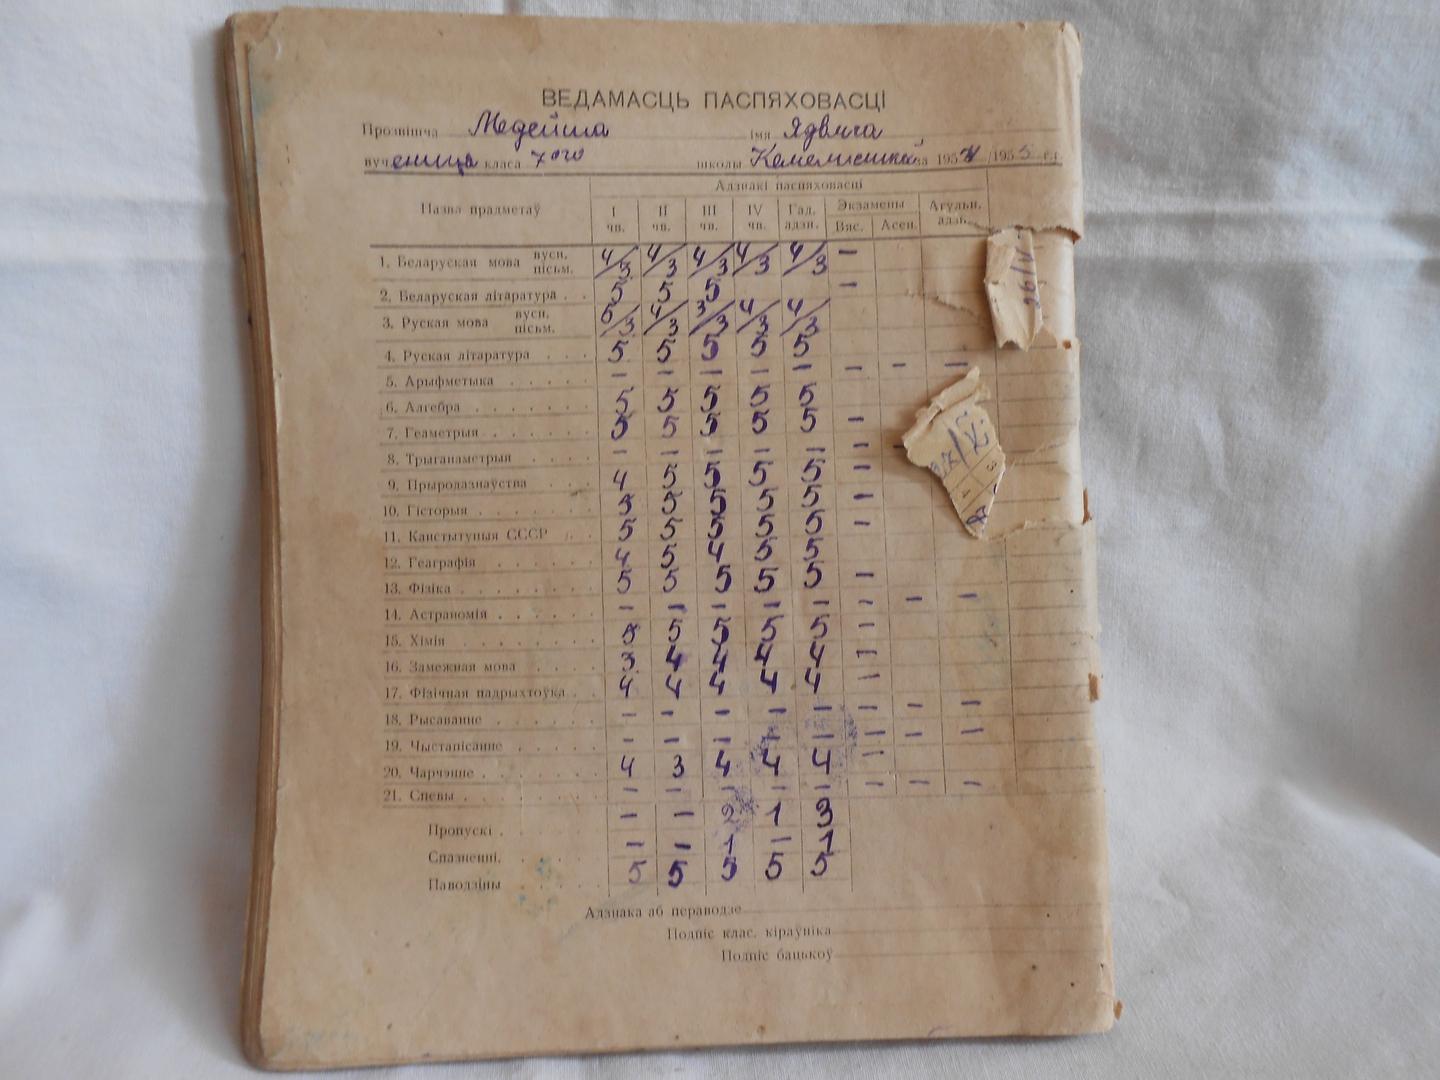 ВЕДАМАСЦЬ ПАСПЯХОВАСЦІ
Прозвішча Медейша імя Ядвига
вученица класа 7ого школы Комелишкой за 1954/1955 г.г.
Назва прадметаў Адзнакі паспяховасці
I чв. II чв. III чв. IV чв. Гад. адзн. Экзамены Вяс. Асен. Агульн. адзн.
1. Беларуская мова вусн. пісьм. 4/3 4/3 4/3 4/3 4/3 —
2. Беларуская літаратура . . 5 5 5 —
3. Руская мова вусн. пісьм. 5/3 4/3 3/3 4/3 4/3
4. Руская літаратура . . . 5 5 5 5 5
5. Арыфметыка . . . . . . — — — — — — — —
6. Алгебра . . . . . . . 5 5 5 5 5
7. Геаметрыя . . . . . . 5 5 5 5 5 —
8. Трыганаметрыя . . . . — — — — — —
9. Прыродазнаўства . . . 4 5 5 5 5 —
10. Гісторыя . . . . . . . 5 5 5 5 —
11. Канстытуцыя СССР . . 5 5 5 5 5 —
12. Геаграфія . . . . . . 4 5 4 5 5
13. Фізіка . . . . . . . . 5 5 5 5 5 —
14. Астраномія . . . . . . — — — — — — — —
15. Хімія . . . . . . . . 5 5 5 5 —
16. Замежная мова . . . . 3 4 4 4 4 —
17. Фізічная падрыхтоўка . . 4 4 4 4 4 —
18. Рысаванне . . . . . . — — — — — — — —
19. Чыстапісанне . . . . . — — — — — — — —
20. Чарчэнне . . . . . . . 4 3 4 4 4 —
21. Спевы . . . . . . . . — — — — — — — —
Пропускі . — — 2 1 3
Спазненні. — — 1 — 1
Паводзіны 5 5 5 5 5
Адзнака аб пераводзе
Подпіс клас. кіраўніка
Подпіс бацькоў